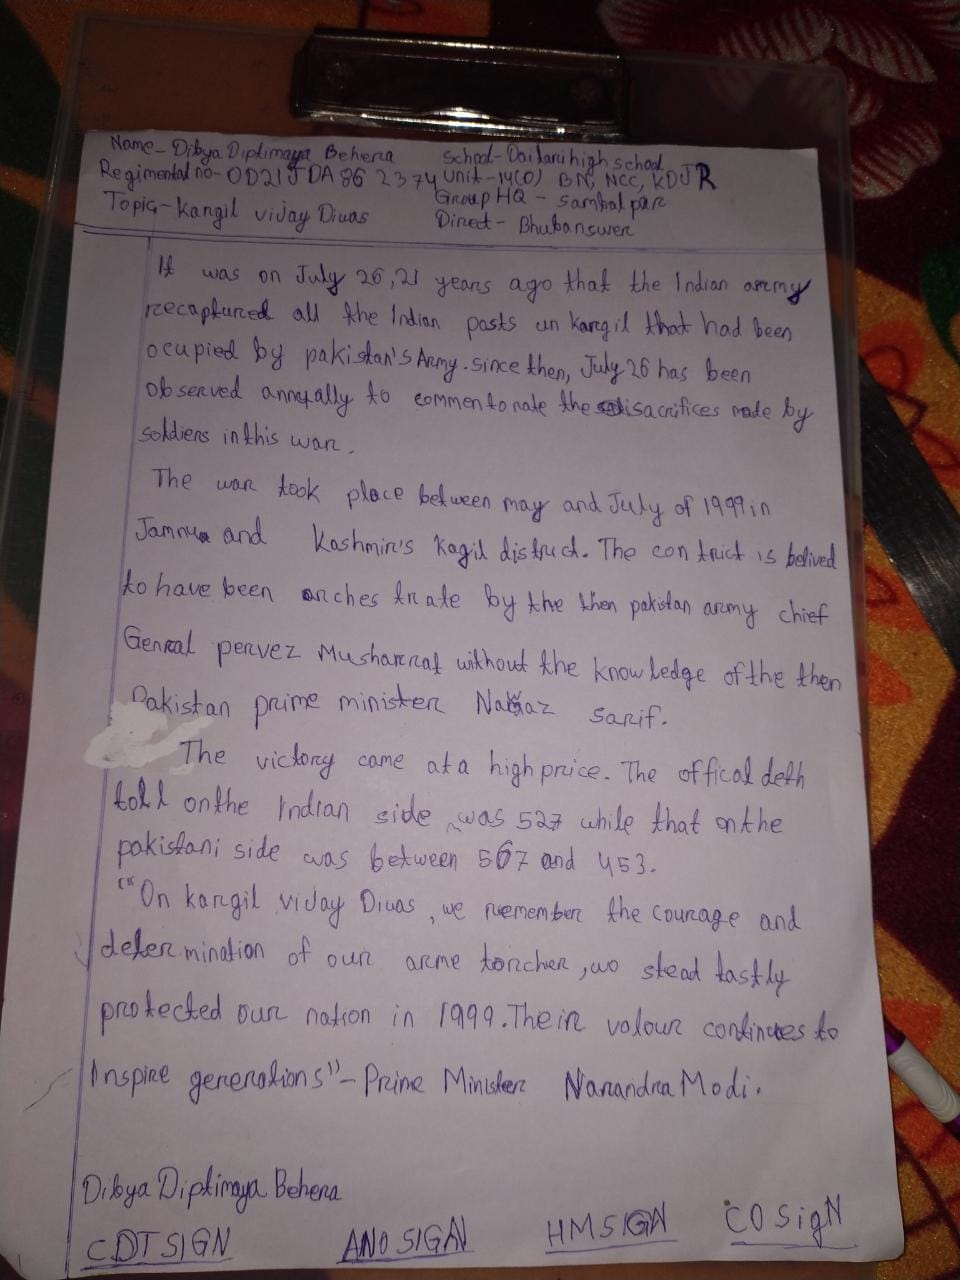 Name- Dibya Diptimaya Behera
School- Daitari high school
Regimental no- OD21JDA862374
Unit- 14(O) BN, NCC, KDJR
Topic- Kangil vijay Diwas
Group HQ - Sambalpar
Direct- Bhubanswer
It was on July 26, 21 years ago that the Indian army
recaptured all the Indian posts un kargil that had been
ocupied by pakistan's Army. since then, July 26 has been
observed annually to commentorate the sacrifices made by
soldiers in this war.
The war took place between may and July of 1999 in
Jammu and Kashmir's Kagil district. The contrict is belived
to have been orchestrate by the then pakistan army chief
Genral pervez Musharraf without the knowledge of the then
Pakistan prime minister Nawaz sarif.
The victory came at a high price. The offical deth
toll on the Indian side was 527 while that on the
pakistani side was between 567 and 453.
"On kargil vijay Diwas, we remember the courage and
determination of our arme torcher, wo stead tastly
protected our nation in 1999. Their valour continues to
Inspire generations" - Prime Minister Narandra Modi.
Dibya Diptimaya Behera
CDT SIGN ANO SIGN HM SIGN CO SigN